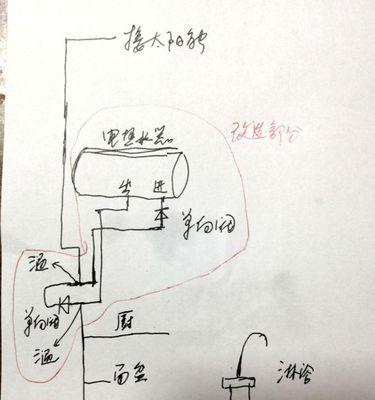 接太阳能
电热水器
改造部分
出 进
单向阀
酒
单向阀
酒
厨
面盆
淋浴